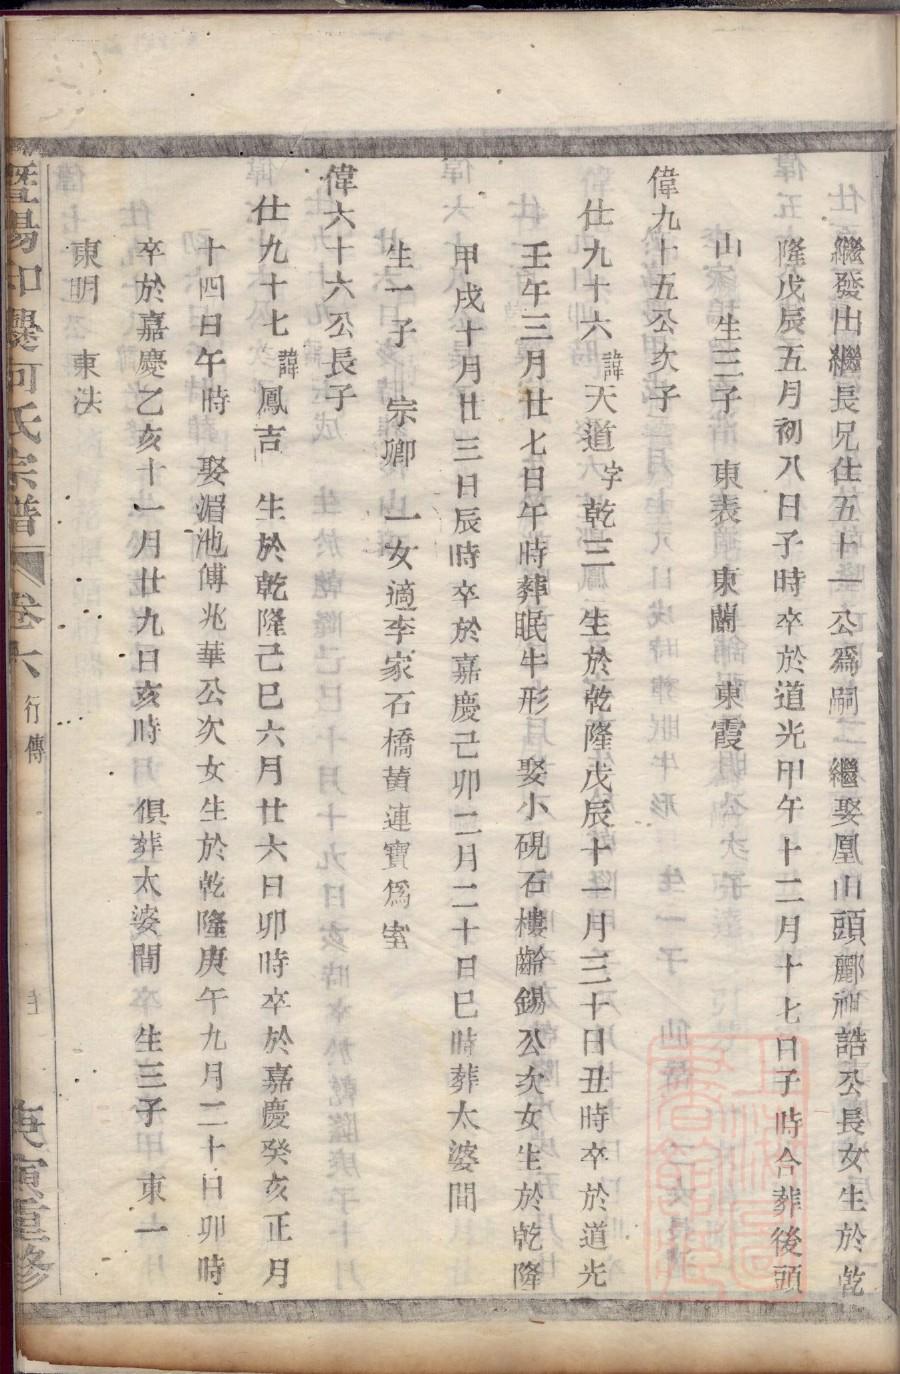 繼發出繼長兄仕五十一公爲嗣 繼娶凰山頭酈神誥公長女生於乾
隆戊辰五月初八日子時卒於道光甲午十二月十七日子時合葬後頭
山 生三子 東表 東蘭 東霞
偉九十五公次子
仕九十六諱天道字乾三 生於乾隆戊辰十一月三十日丑時卒於道光
壬午三月廿七日午時葬眠牛形 娶小硯石樓齡錫公次女生於乾隆
甲戌十月廿三日辰時卒於嘉慶己卯二月二十日巳時葬太婆間
生一子 宗卿 一女適李家石橋黃連寶爲室
偉六十六公長子
仕九十七諱鳳吉 生於乾隆己巳六月廿六日卯時卒於嘉慶癸亥正月
十四日午時 娶湄池傅兆華公次女生於乾隆庚午九月二十日卯時
卒於嘉慶乙亥十一月廿九日亥時 俱葬太婆間 生三子 東一
東明 東法
暨陽 何氏宗譜 卷六 行傳 庚寅重修